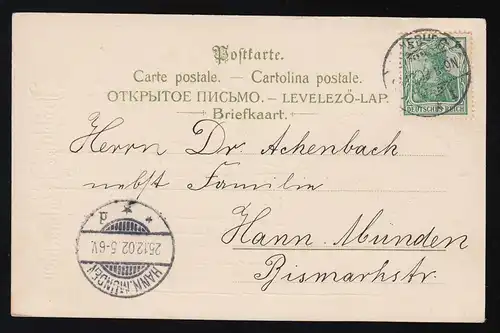 Postkarte.
Carte postale. — Cartolina postale.
ОТКРЫТОЕ ПИСЬМО. — LEVELEZŐ-LAP.
Briefkaart.
DEUTSCHES REICH
Herrn Dr. Achenbach
nebst Familie
Hann. Münden
Bismarkstr.
25.12.02.5-6V.
HANN. MÜNDEN